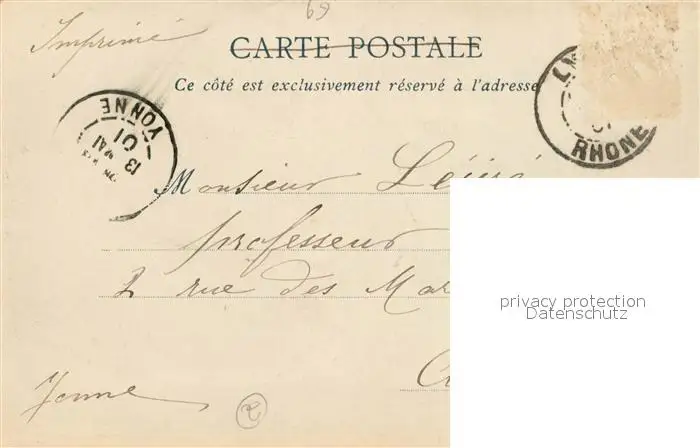 69
Imprimé
CARTE POSTALE
Ce côté est exclusivement réservé à l'adresse
RHONE
YONNE
13
MAI
01
Monsieur
professeur
2 rue des Mar
Yonne
2
privacy protection
Datenschutz